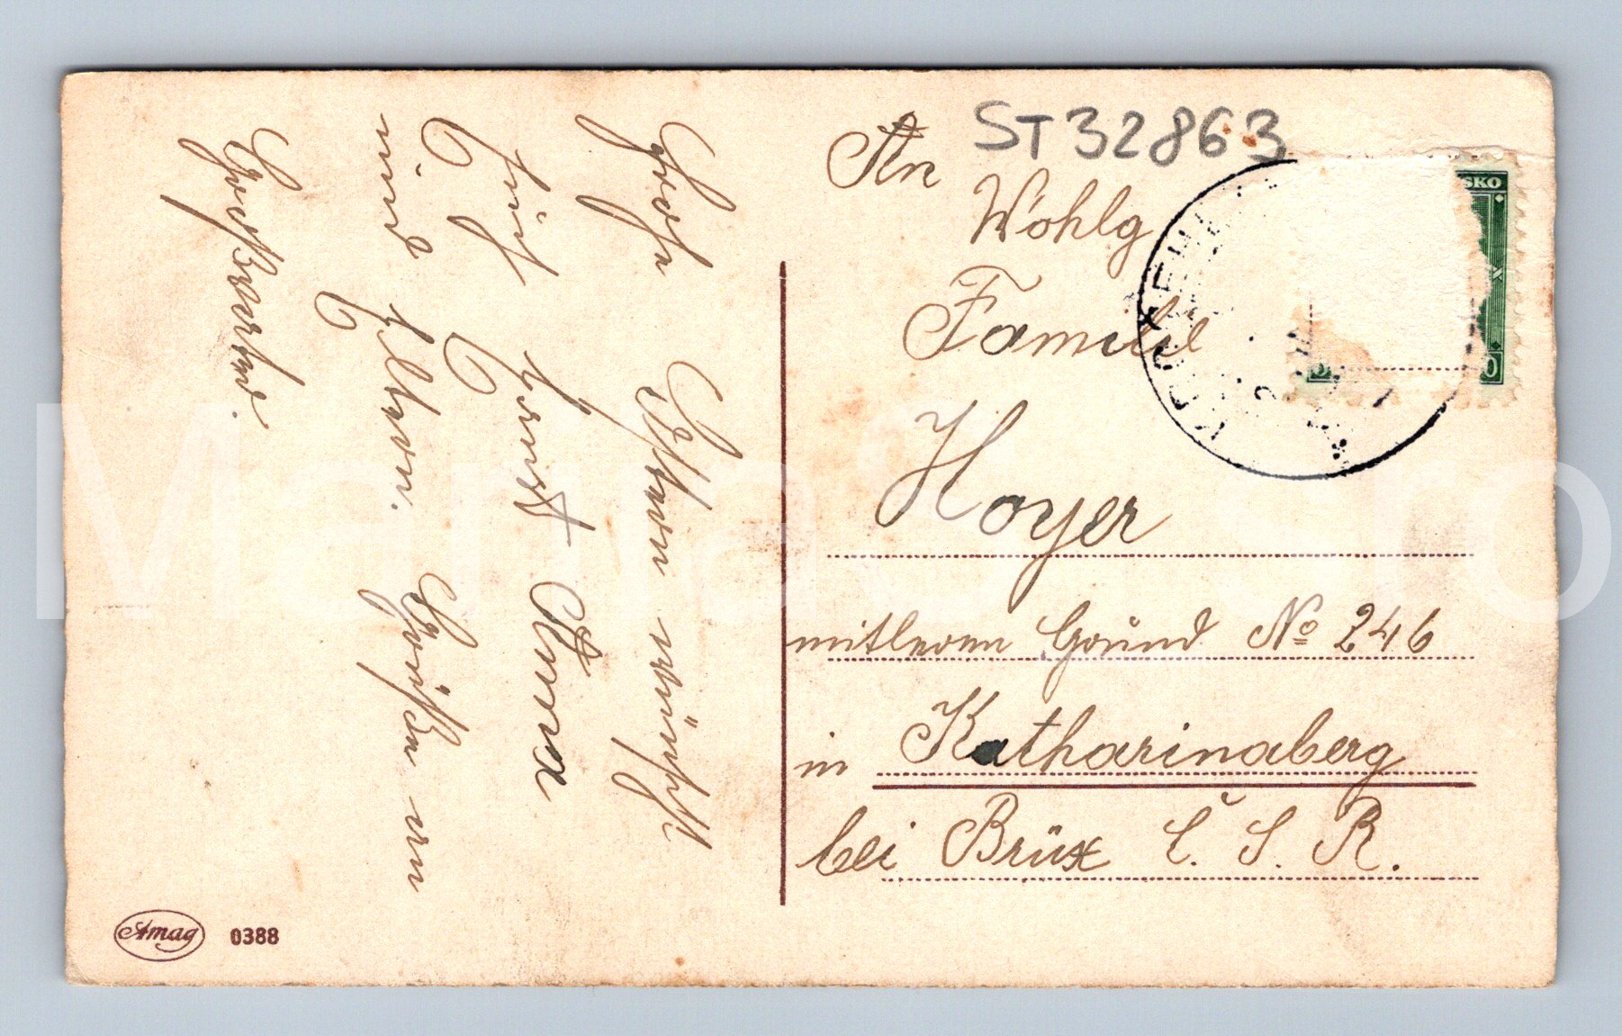 Frohe
Ostern wünscht
Euch Ernst Anna
und Eltern. Grüßen um
Großvater.
An
Wohlg
Familie
Hoyer
mitleren Grund № 246
in Katharinaberg
bei Brüx Č. S. R.
ST32863
SKO
Amag 0388